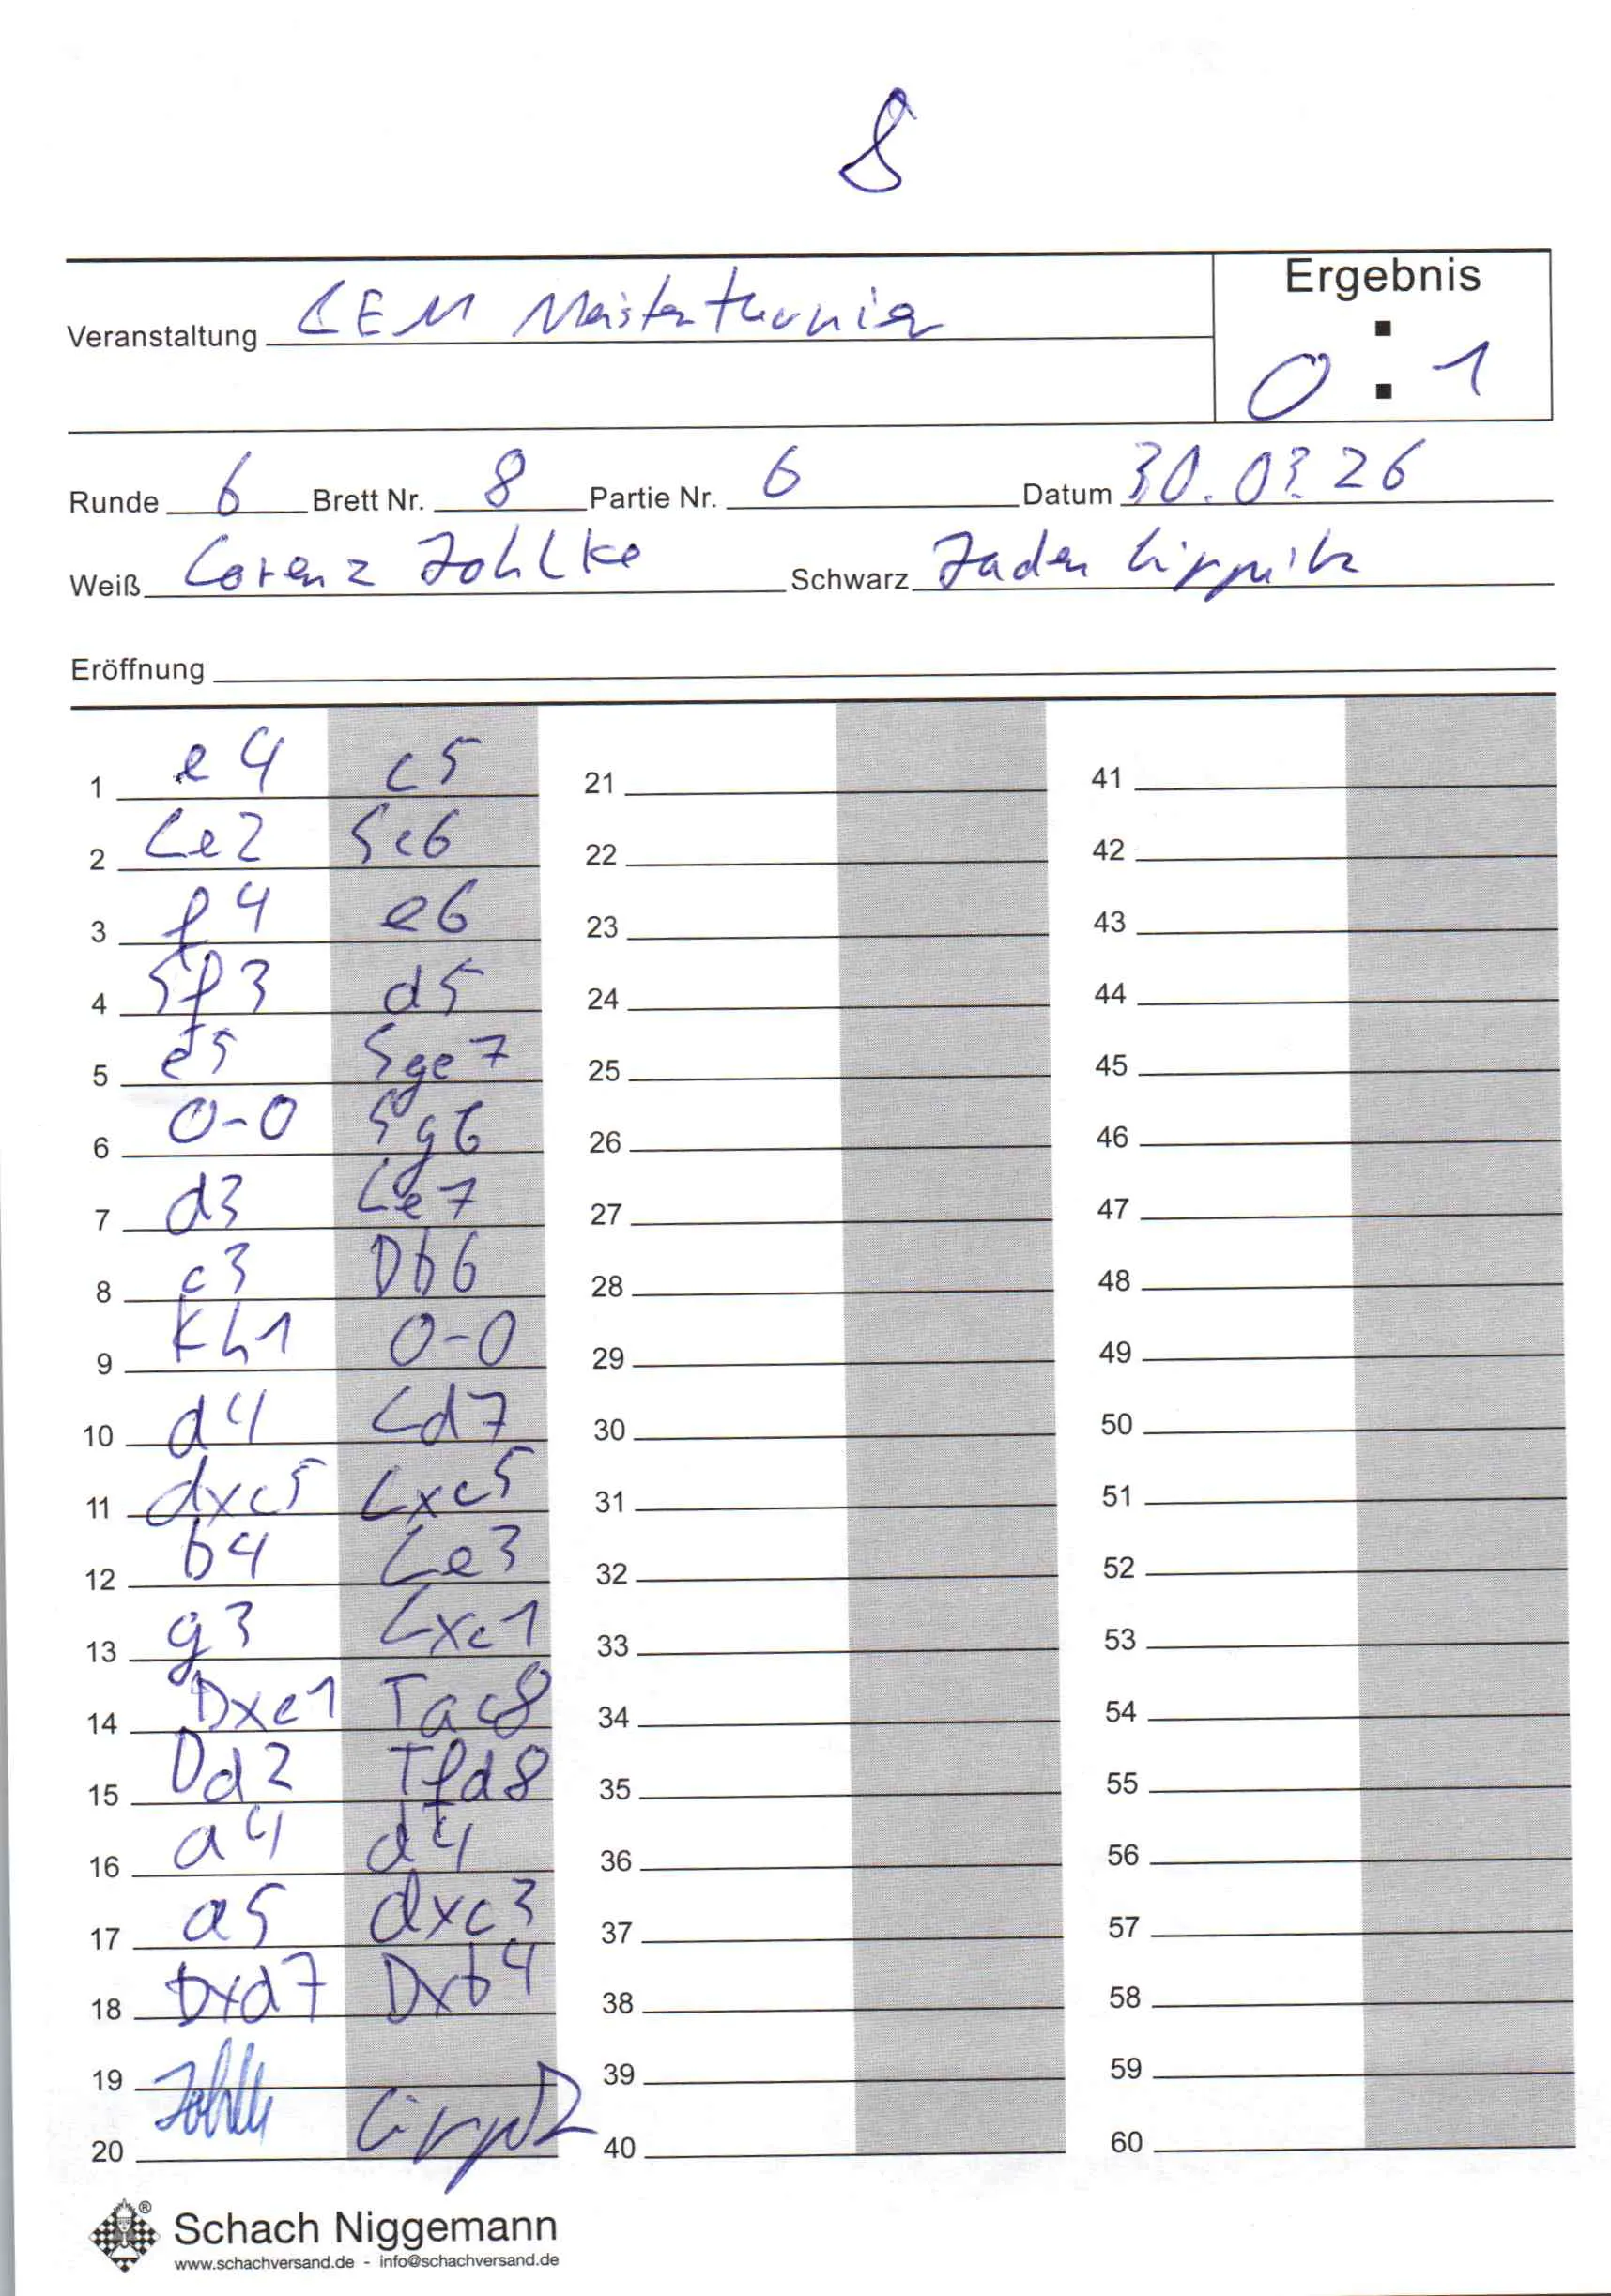 8
Ergebnis
Veranstaltung LEM Meisterturnier
0 : 1
Runde 6 Brett Nr. 8 Partie Nr. 6 Datum 30.03.26
Weiß Lorenz Schwarz Jaden
Eröffnung
1 e4 c5 21 41
2 Le2 Sc6 22 42
3 f4 e6 23 43
4 Sf3 d5 24 44
5 e5 Sge7 25 45
6 0-0 Sg6 26 46
7 d3 Le7 27 47
8 c3 Db6 28 48
9 Kh1 0-0 29 49
10 d4 Ld7 30 50
11 dxc5 Lxc5 31 51
12 b4 Le3 32 52
13 g3 Lxc1 33 53
14 Dxc1 Tac8 34 54
15 Dd2 Tfd8 35 55
16 a4 d4 36 56
17 a5 dxc3 37 57
18 Dxd7 Dxb4 38 58
19 39 59
20 40 60
® Schach Niggemann
www.schachversand.de - info@schachversand.de